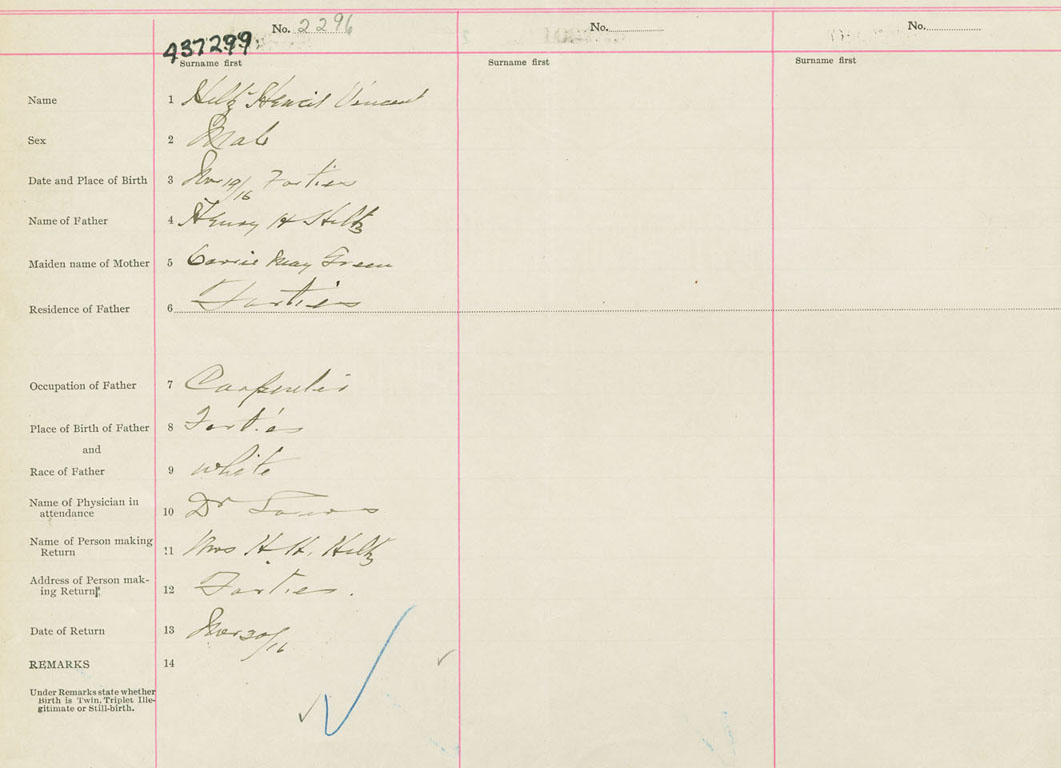 No. 2296 No. No.
437299.
Surname first Surname first Surname first
Name 1 Hiltz Vincent
Sex 2 Male
Date and Place of Birth 3 Nov 19/16 Forties
Name of Father 4 Henry H Hiltz
Maiden name of Mother 5 Carrie May Green
Residence of Father 6 Forties
Occupation of Father 7 Carpenter
Place of Birth of Father 8 Forties
and
Race of Father 9 White
Name of Physician in
attendance 10 Dr
Name of Person making
Return 11 Mrs H. H. Hiltz
Address of Person mak-
ing Return 12 Forties.
Date of Return 13 Nov 20/16
REMARKS 14
Under Remarks state whether
Birth is Twin, Triplet Ille-
gitimate or Still-birth.